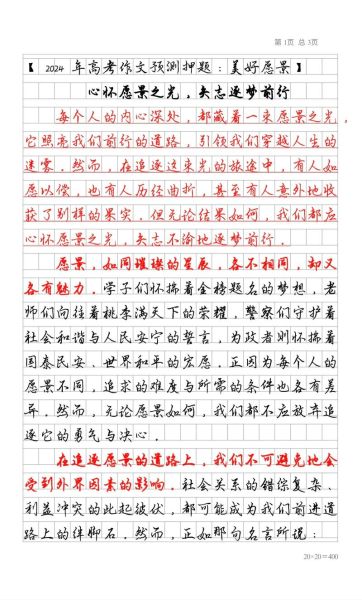 第1页 总3页
【2024 年高考作文预测押题：美好愿景】
心怀愿景之光，矢志逐梦前行
每个人的内心深处，都藏着一束愿景之光，
它照亮我们前行的道路，引领我们穿越人生的
迷雾。然而，在追逐这束光的旅途中，有人如
愿以偿，也有人历经曲折，甚至有人意外地收
获了别样的果实。但无论结果如何，我们都应
心怀愿景之光，矢志不渝地逐梦前行。
愿景，如同璀璨的星辰，各不相同，却又
各有魅力。学子们怀揣着金榜题名的梦想，老
师们向往着桃李满天下的荣耀，警察们守护着
社会和谐与人民安宁的誓言，为政者则怀揣着
国泰民安、世界和平的宏愿。正因为每个人的
愿景不同，追求的难度与所需的条件也各有差
异。然而，无论愿景如何，我们都不应放弃追
逐它的勇气与决心。
在追逐愿景的道路上，我们不可避免地会
受到外界因素的影响。社会关系的错综复杂、
利益冲突的此起彼伏，都可能成为我们前进道
路上的绊脚石。然而，正如那句名言所说：
20×20=400